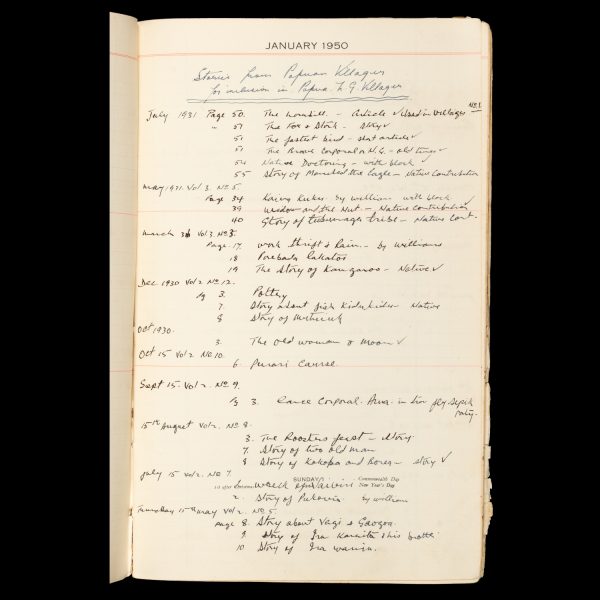 JANUARY 1950
Stories from Papuan Villager
for inclusion in Papua N.G. Villager
No 1
July 1931 Page 50. The hornbill. - Article ✓ Used in Villager
" 51 The Fox & Stork - Story ✓
51 The fastest bird - short article ✓
51 The Brave Corporal on N.G. - old times ✓
54 Native Doctoring - with block ✓
55 Story of the Eagle - Native Contribution
May 1931. Vol 3. No 5.
Page 34 Racing by William with block ✓
39 Widow and the Nut - Native Contribution
40 Story of tribe - Native Cont.
March 31 Vol 3. No 3.
Page 17. Work Thrift & Rain. - by Williams
18 Porebada Lakatos
19 The Story of Kangaroo - Native ✓
Dec 1930 Vol 2 No 12.
Pg 3. Pottery
7. Story about fish Native
8 Story of
Oct 1930.
3. The old woman & moon ✓
Oct 15 Vol 2 No 10.
6. Purari Canoe.
Sept 15. Vol 2. No 9.
Pg 3. Lance Corporal. in Fly Sepik
Party.
15th August Vol 2. No 8.
3. The Roosters feast - Story.
7. Story of two old man
8 Story of Kokopa and - story ✓
July 15 Vol 2. No 7.
SUNDAY 1
Commonwealth Day
1st after Christmas
New Year's Day
1. Wreck
2. Story of by William
Thursday 15th May Vol 2. No 5.
Page 8. Story about Vagi & Gaogoa.
9 Story of Ira & his brother
10 Story of Ira